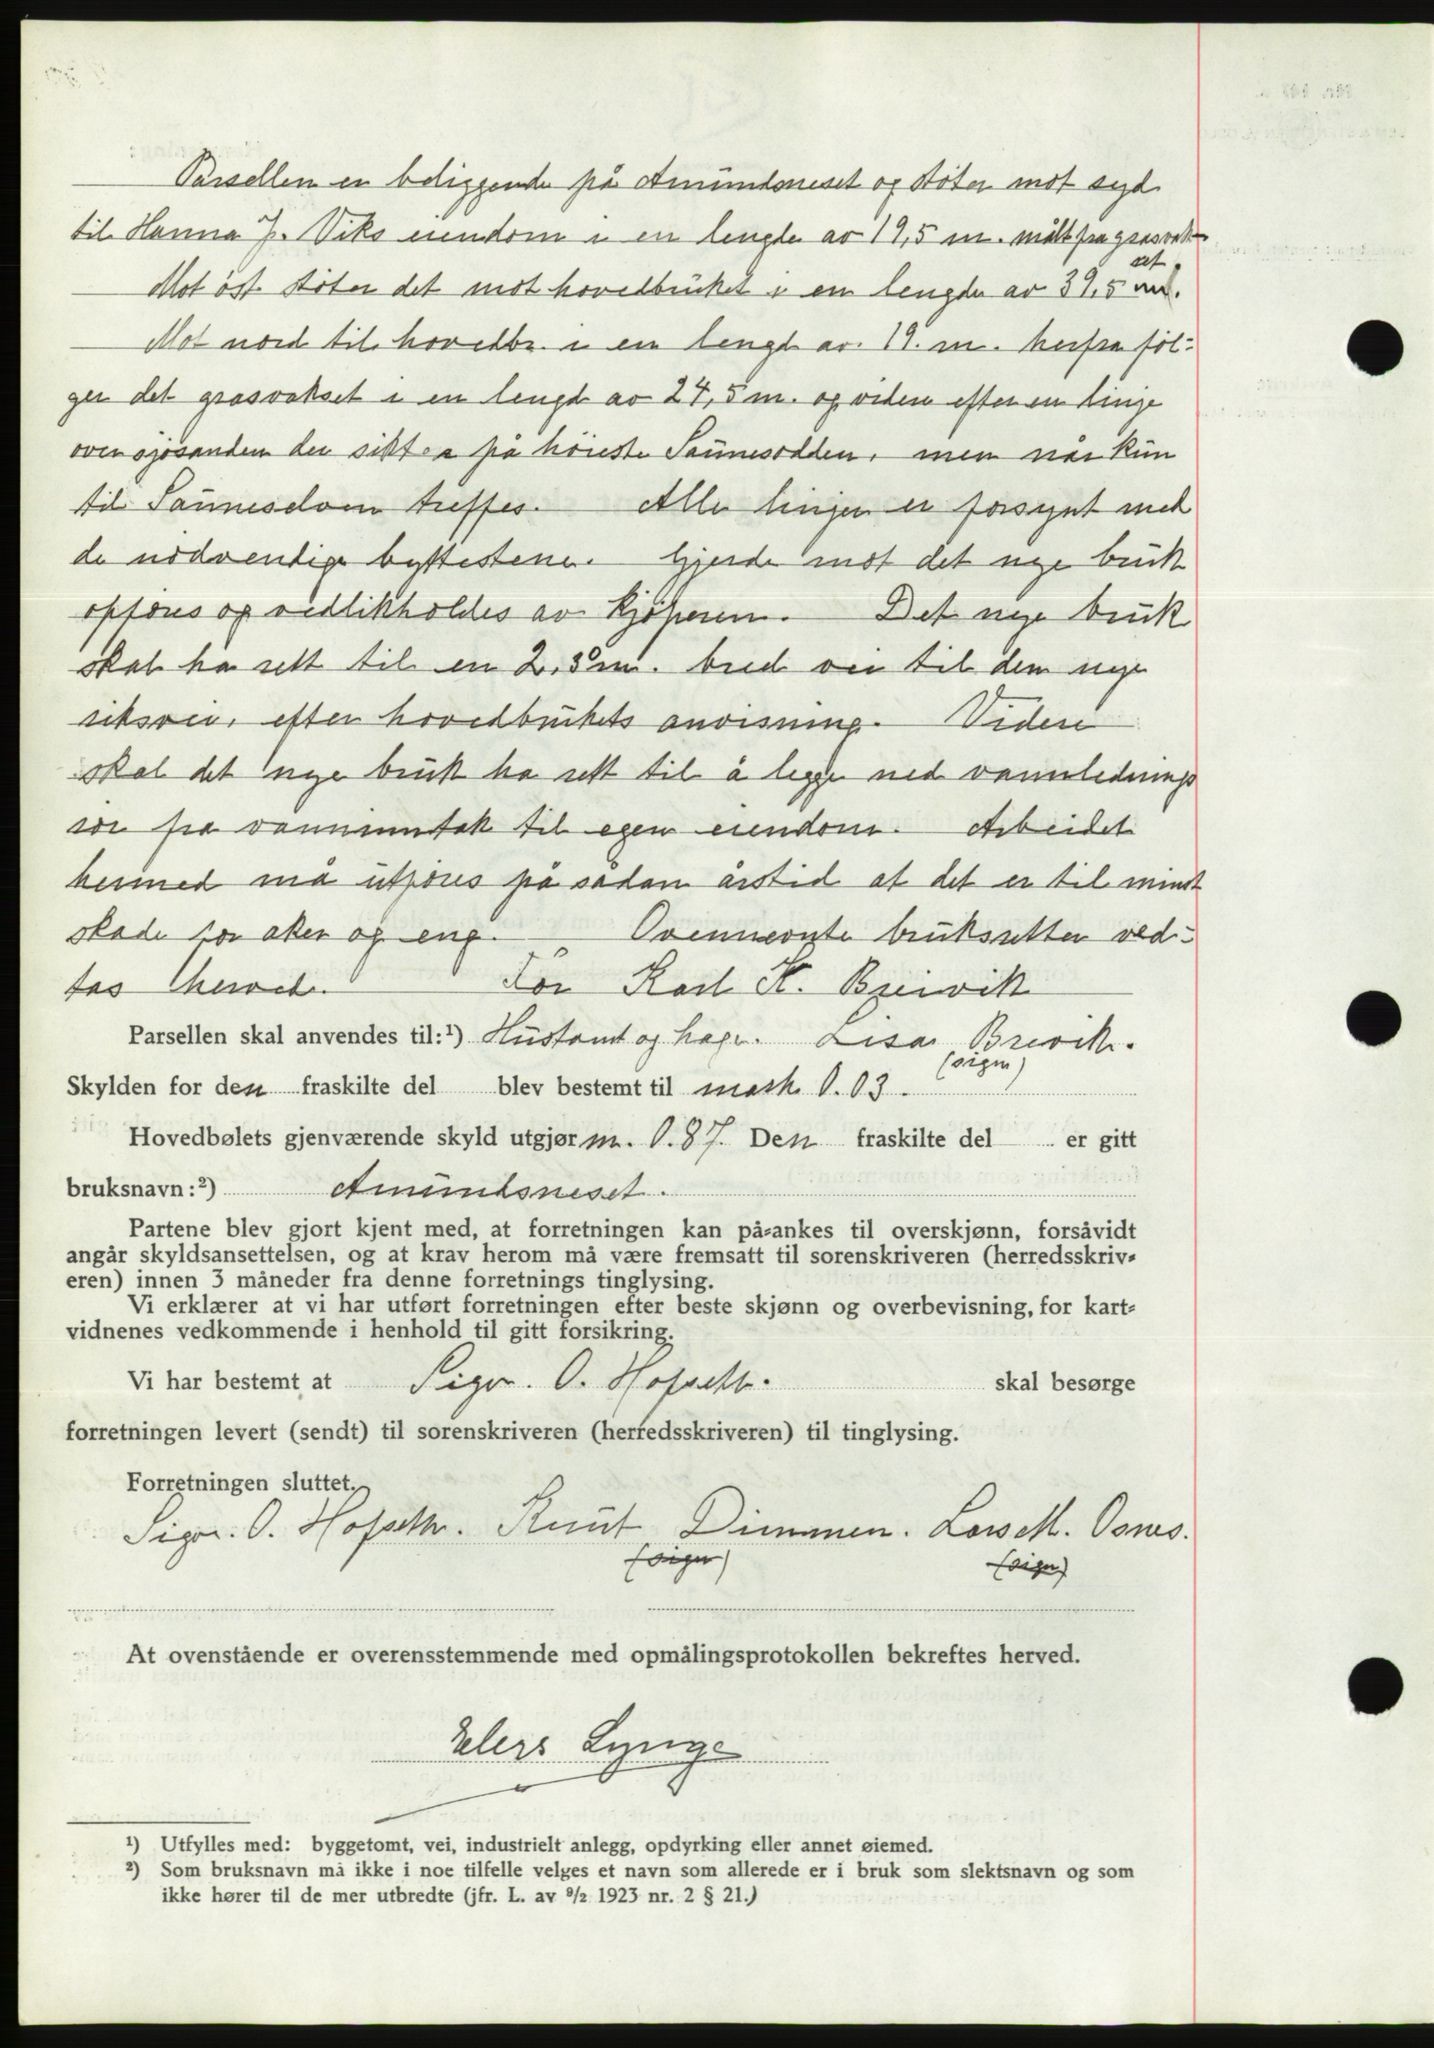 Parsellen er beliggende på Amundsneset og støter mot syd
til Hanna J. Viks eiendom i en lengde av 19,5 m. målt fra grasvak-
set
Mot øst støter det mot hovedbruket i en lengde av 39,5 m.
Mot nord til hovedbr. i en lengd av 19. m. herfra føl-
ger det grasvakset i en lengd av 24,5 m. og videre efter en linje
over sjøsanden der sikter på høieste Saunesodden, men når kun
til Sauneselven treffes. Alle linjer er forsynt med
de nødvendige byttestene. Gjerde mot det nye bruk
opføres og vedlikholdes av kjøperen. Det nye bruk
skal ha rett til en 2,50 m. bred vei til den nye
riksvei, efter hovedbrukets anvisning. Videre
skal det nye bruk ha rett til å legge ned vannlednings
rør fra vanninntak til egen eiendom. Arbeidet
hermed må utføres på sådan årstid at det er til minst
skade for aker og eng. Ovennevnte bruksretter ved-
tas herved. For Karl K. Breivik
Parsellen skal anvendes til:¹) Hustomt og hage. Lisa Brevik.
(sign)
Skylden for den fraskilte del blev bestemt til mark 0.03.
Hovedbølets gjenværende skyld utgjør m. 0.87. Den fraskilte del er gitt
bruksnavn:²) Amundsneset.
Partene blev gjort kjent med, at forretningen kan på-ankes til overskjønn, forsåvidt
angår skyldsansettelsen, og at krav herom må være fremsatt til sorenskriveren (herredsskriv-
eren) innen 3 måneder fra denne forretnings tinglysing.
Vi erklærer at vi har utført forretningen efter beste skjønn og overbevisning, for kart-
vidnenes vedkommende i henhold til gitt forsikring.
Vi har bestemt at Sigv. O. Hofseth. skal besørge
forretningen levert (sendt) til sorenskriveren (herredsskriveren) til tinglysing.
Forretningen sluttet.
Sigv. O. Hofseth. Knut Dimmen. Lars M. Osnes.
(sign) (sign)
At ovenstående er overensstemmende med opmålingsprotokollen bekreftes herved.
Elers Lynge
¹) Utfylles med: byggetomt, vei, industrielt anlegg, opdyrking eller annet øiemed.
²) Som bruksnavn må ikke i noe tilfelle velges et navn som allerede er i bruk som slektsnavn og som
ikke hører til de mer utbredte (jfr. L. av 9/2 1923 nr. 2 § 21.)